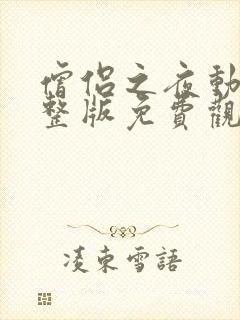 僧侶之夜動
整版免費觀
凌東雪語